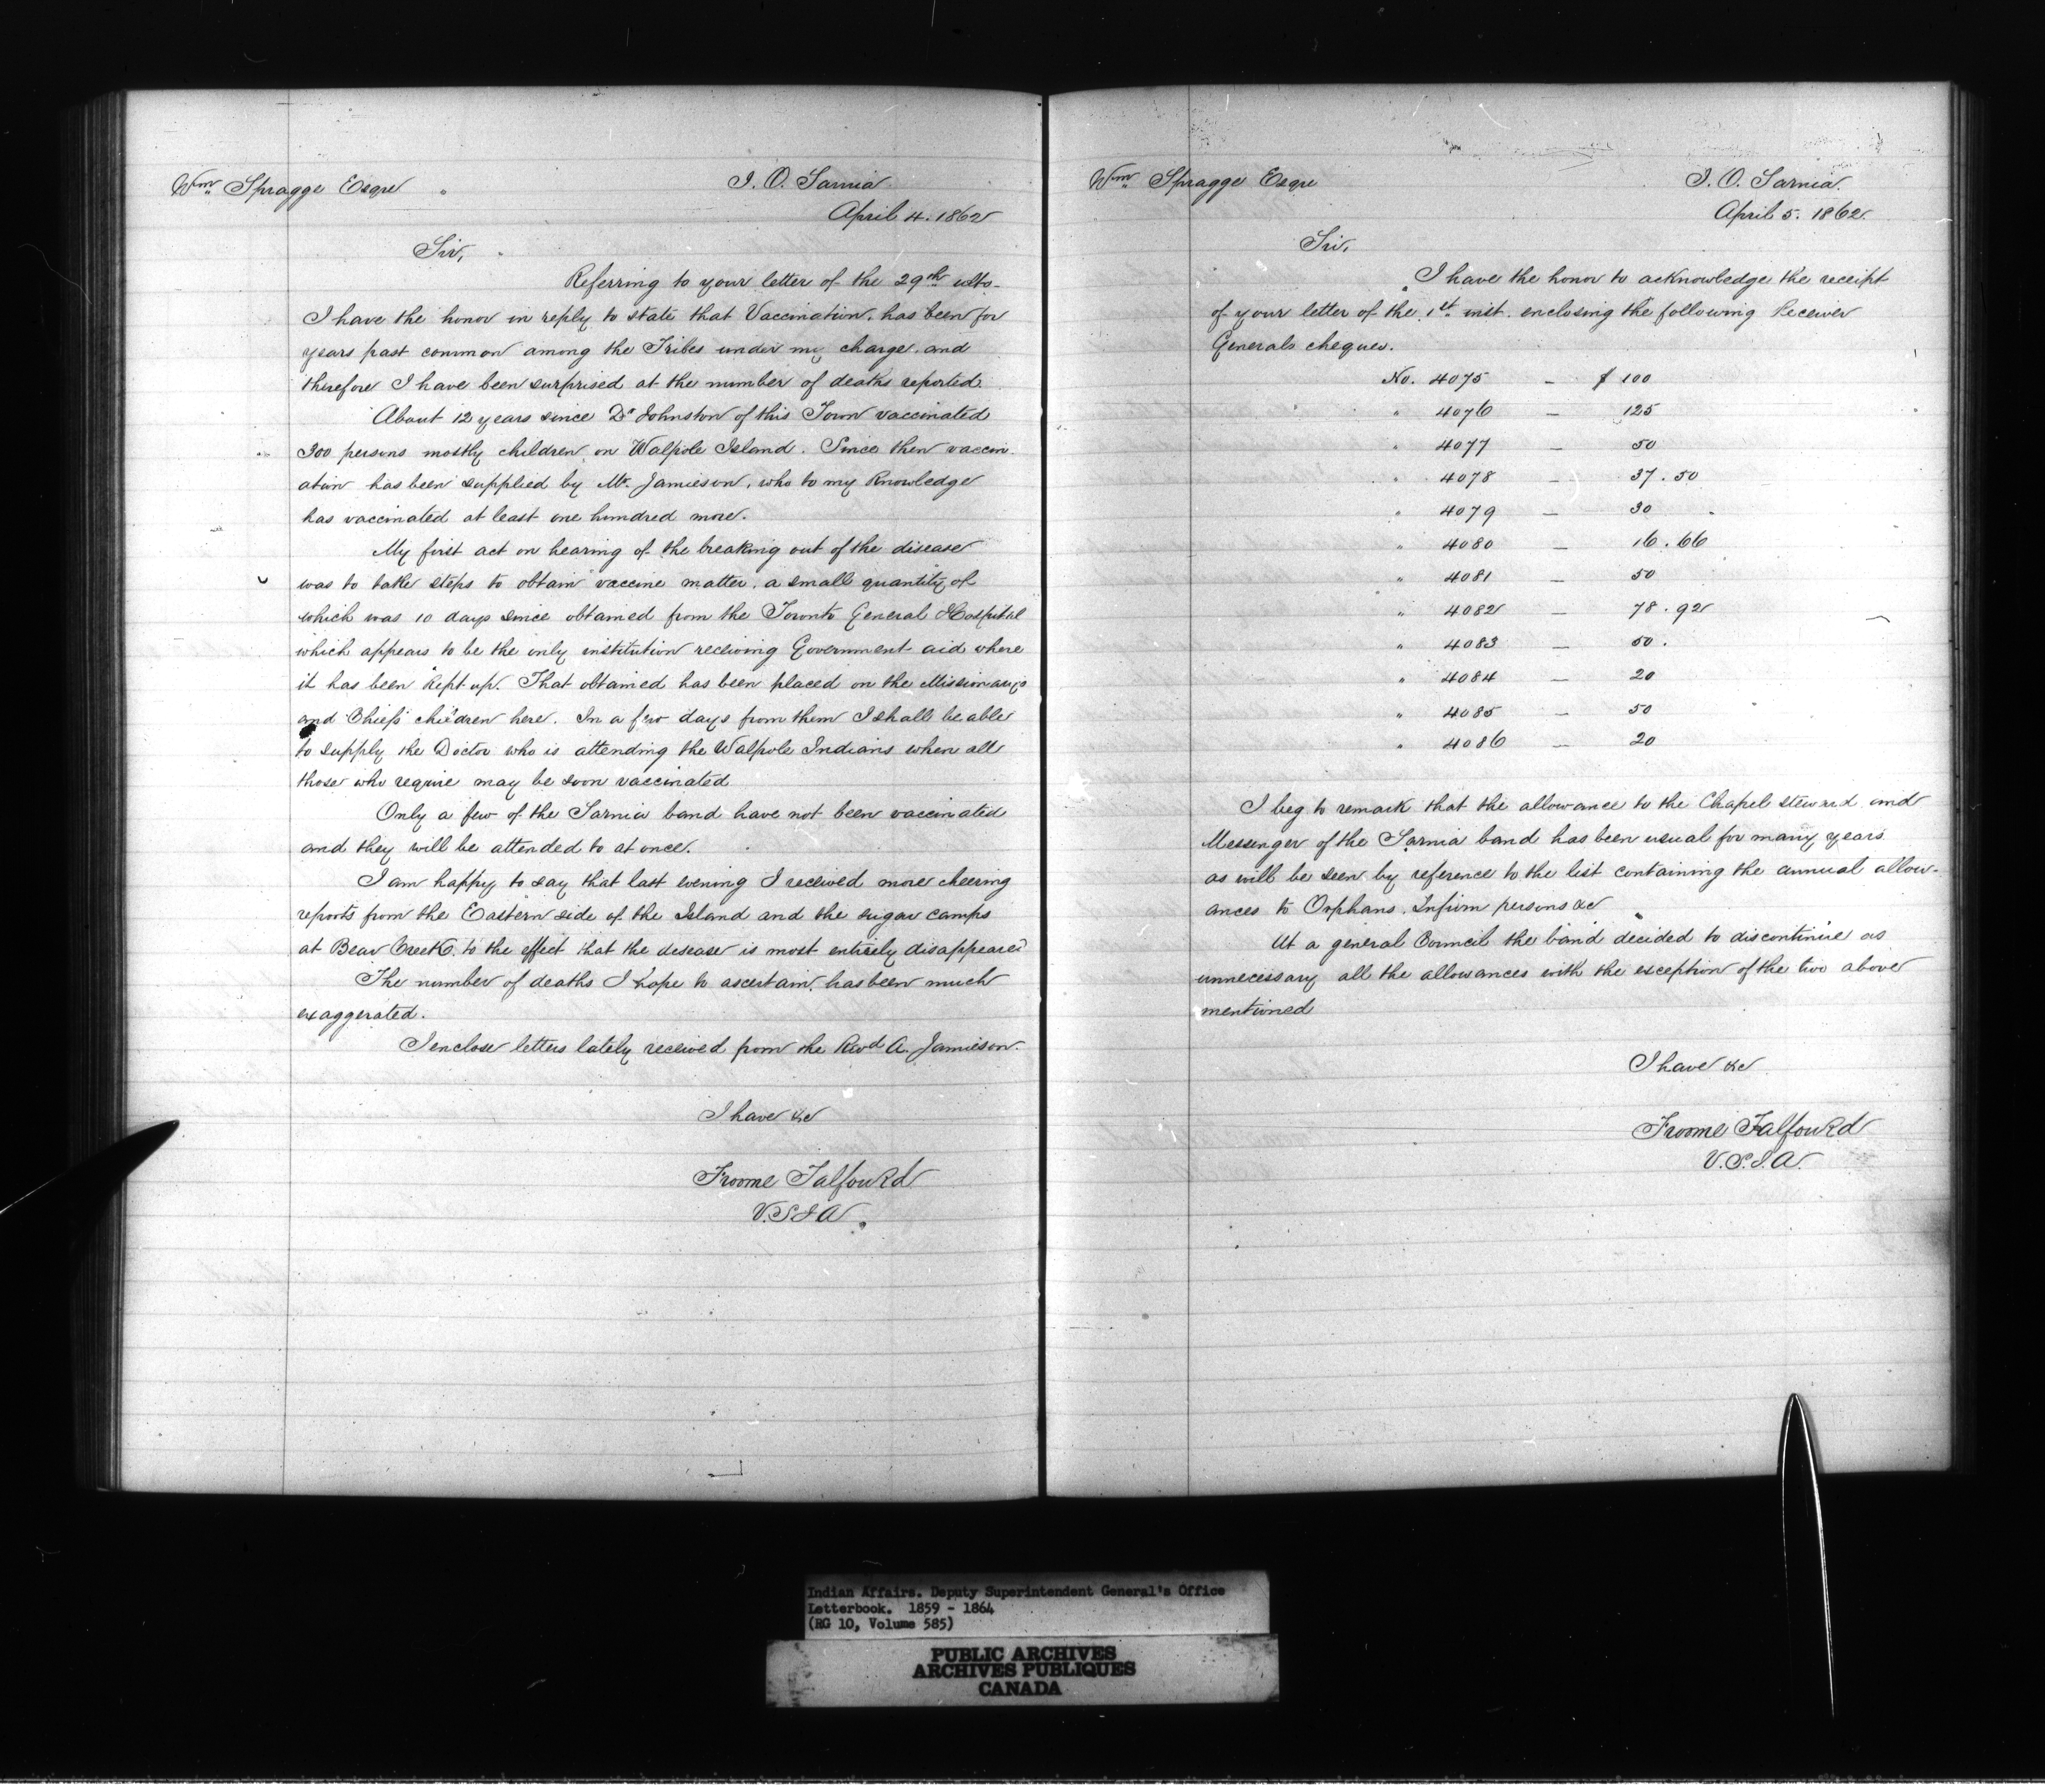 Wm Spragge Esqre
I. O. Sarnia
April 4. 1862
Sir,
Referring to your letter of the 29th ulto-
I have the honor in reply to state that Vaccination, has been for
years past common among the Tribes under my charge, and
therefore I have been surprised at the number of deaths reported.
About 12 years since Dr Johnston of this Town vaccinated
300 persons mostly children, on Walpole Island. Since then vaccin
ation has been supplied by Mr. Jamieson, who to my Knowledge
has vaccinated at least one hundred more.
My first act on hearing of the breaking out of the disease
was to take steps to obtain vaccine matter, a small quantity of
which was 10 days since obtained from the Toronto General Hospital
which appears to be the only institution receiving Government aid where
it has been Kept up. That obtained has been placed on the Missionarys
and Chiefs children here. In a few days from them I shall be able
to supply the Doctor who is attending the Walpole Indians when all
those who require may be soon vaccinated
Only a few of the Sarnia band have not been vaccinated
and they will be attended to at once.
I am happy to say that last evening I received more cheering
reports from the Eastern side of the Island and the sugar camps
at Bear Creek, to the effect that the desease is most entirely disappeared
The number of deaths I hope to ascertain, has been much
exaggerated.
I enclose letters lately received from the Revd A. Jamieson.
I have &c
Froome Talfourd
V.S I A.
Wm Spragge Esqre
I. O. Sarnia.
April 5. 1862.
Sir,
I have the honor to acknowledge the receipt
of your letter of the 1st inst. enclosing the following Receiver
Generals cheques.
No. 4075 - $ 100
" 4076 - 125
" 4077 - 50
" 4078 - 37.50
" 4079 - 30
" 4080 - 16.66
" 4081 - 50
" 4082 - 78.92
" 4083 - 50.
" 4084 - 20
" 4085 - 50
" 4086 - 20
I beg to remark that the allowance to the Chapel steward and
Messenger of the Sarnia band has been usual for many years
as will be seen by reference to the list containing the annual allow-
ances to Orphans, Infirm persons &c
At a general Council the band decided to discontinue as
unnecessary all the allowances with the exception of the two above
mentioned
I have &c
Froome Talfourd
V.S.I.A.
Indian Affairs. Deputy Superintendent General's Office
Letterbook. 1859 - 1864
(RG 10, Volume 585)
PUBLIC ARCHIVES
ARCHIVES PUBLIQUES
CANADA